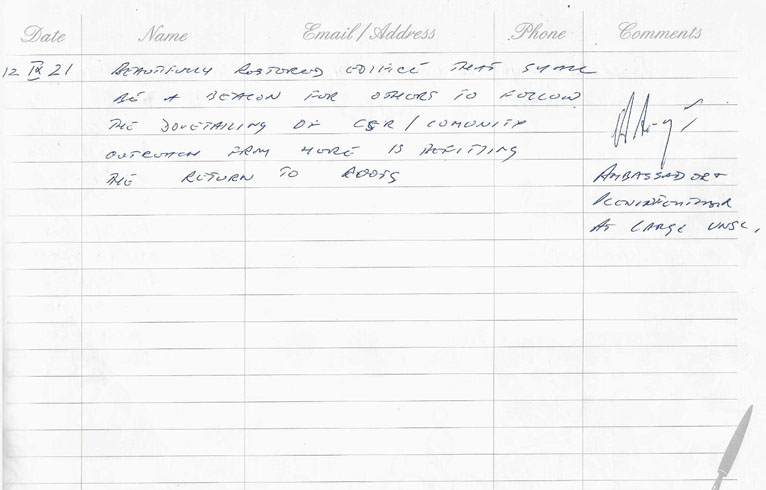 Date Name Email/Address Phone Comments
12 IX 21 BEAUTIFULLY RESTORED EDIFICE THAT SHALL
BE A BEACON FOR OTHERS TO FOLLOW
THE DOVETAILING OF CSR / COMUNITY
OUTREACH FROM HERE IS BEFITTING
THE RETURN TO ROOTS
AMBASSADOR &
AT LARGE UNSC,